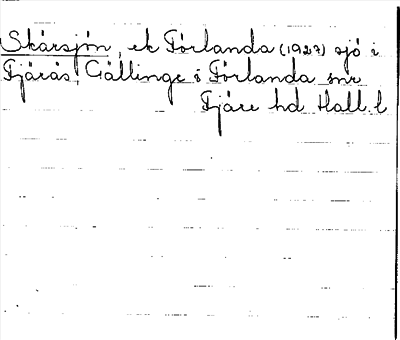 Skärsjön, ek Förlanda (1927) sjö i
Fjärås, Gällinge o Förlanda snr
Fjäre hd Hall. l